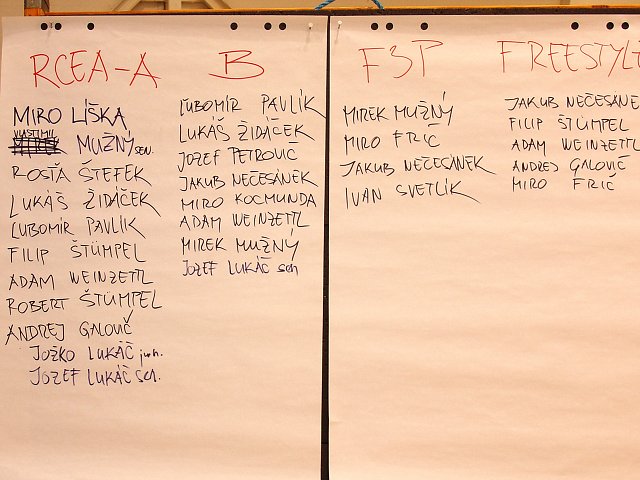 RCEA-A
MIRO LÍŠKA
VLASTIMIL
MUŽNÝ SEN.
ROSŤA ŠTEFEK
LUKÁŠ ŽIDÁČEK
ĽUBOMÍR PAVLÍK
FILIP ŠTÜMPEL
ADAM WEINZETTL
ROBERT ŠTÜMPEL
ANDREJ GALOVIČ
JOŽKO LUKÁČ jun.
JOZEF LUKÁČ sen.
B
ĽUBOMÍR PAVLÍK
LUKÁŠ ŽIDÁČEK
JOZEF PETROVIČ
JAKUB NEČESÁNEK
MIRO KOCMUNDA
ADAM WEINZETTL
MIREK MUŽNÝ
JOZEF LUKÁČ sen
F3P
MIREK MUŽNÝ
MIRO FRIČ
JAKUB NEČESÁNEK
IVAN SVETLÍK
FREESTYLE
JAKUB NEČESÁNE
FILIP ŠTÜMPEL
ADAM WEINZETTL
ANDREJ GALOVIČ
MIRO FRIČ